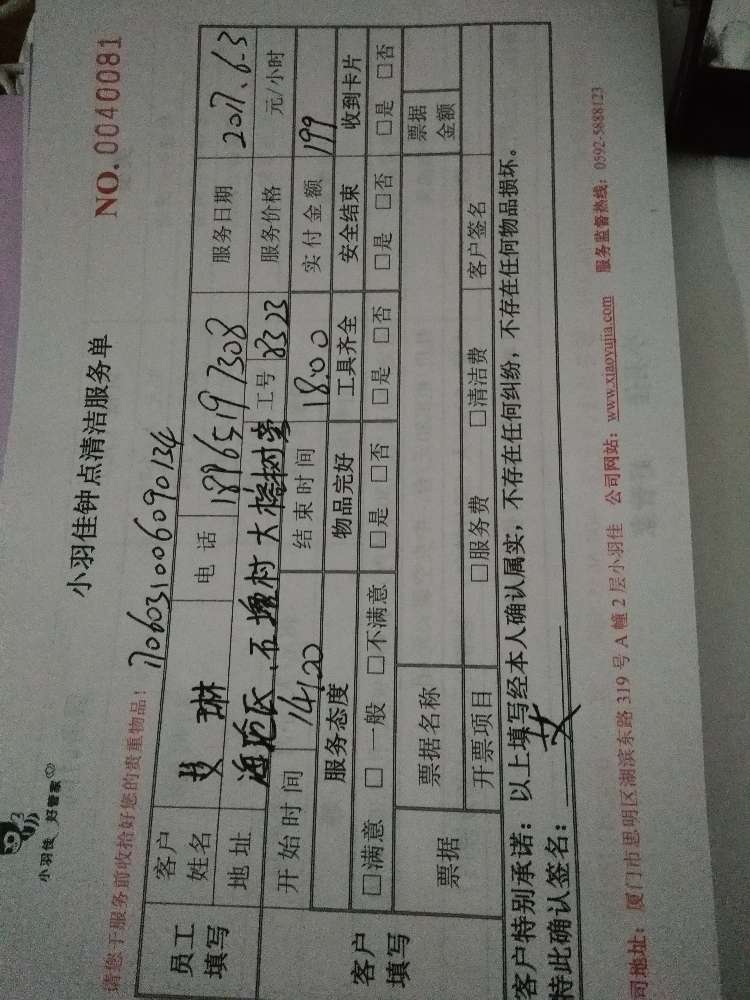 小羽佳 好管家
小羽佳钟点清洁服务单
NO.0040081
请您于服务前收拾好您的贵重物品!
1706031006090134
员工填写
客户姓名 艾琳 电话 18965197308 服务日期 2017.6.3
地址 海沧区、石塘村大榕树旁 工号 8323 服务价格 元/小时
开始时间 14:00 结束时间 18:00 实付金额 199
客户填写
服务态度 物品完好 工具齐全 安全结束 收到卡片
□满意 □一般 □不满意 □是 □否 □是 □否 □是 □否 □是 □否
票据 票据名称 票据金额
开票项目 □服务费 □清洁费 客户签名
客户特别承诺:以上填写经本人确认属实,不存在任何纠纷,不存在任何物品损坏。
特此确认签名:艾
司地址:厦门市思明区湖滨东路 319 号 A 幢 2 层小羽佳 公司网站:www.xiaoyujia.com 服务监督热线:0592-5888123